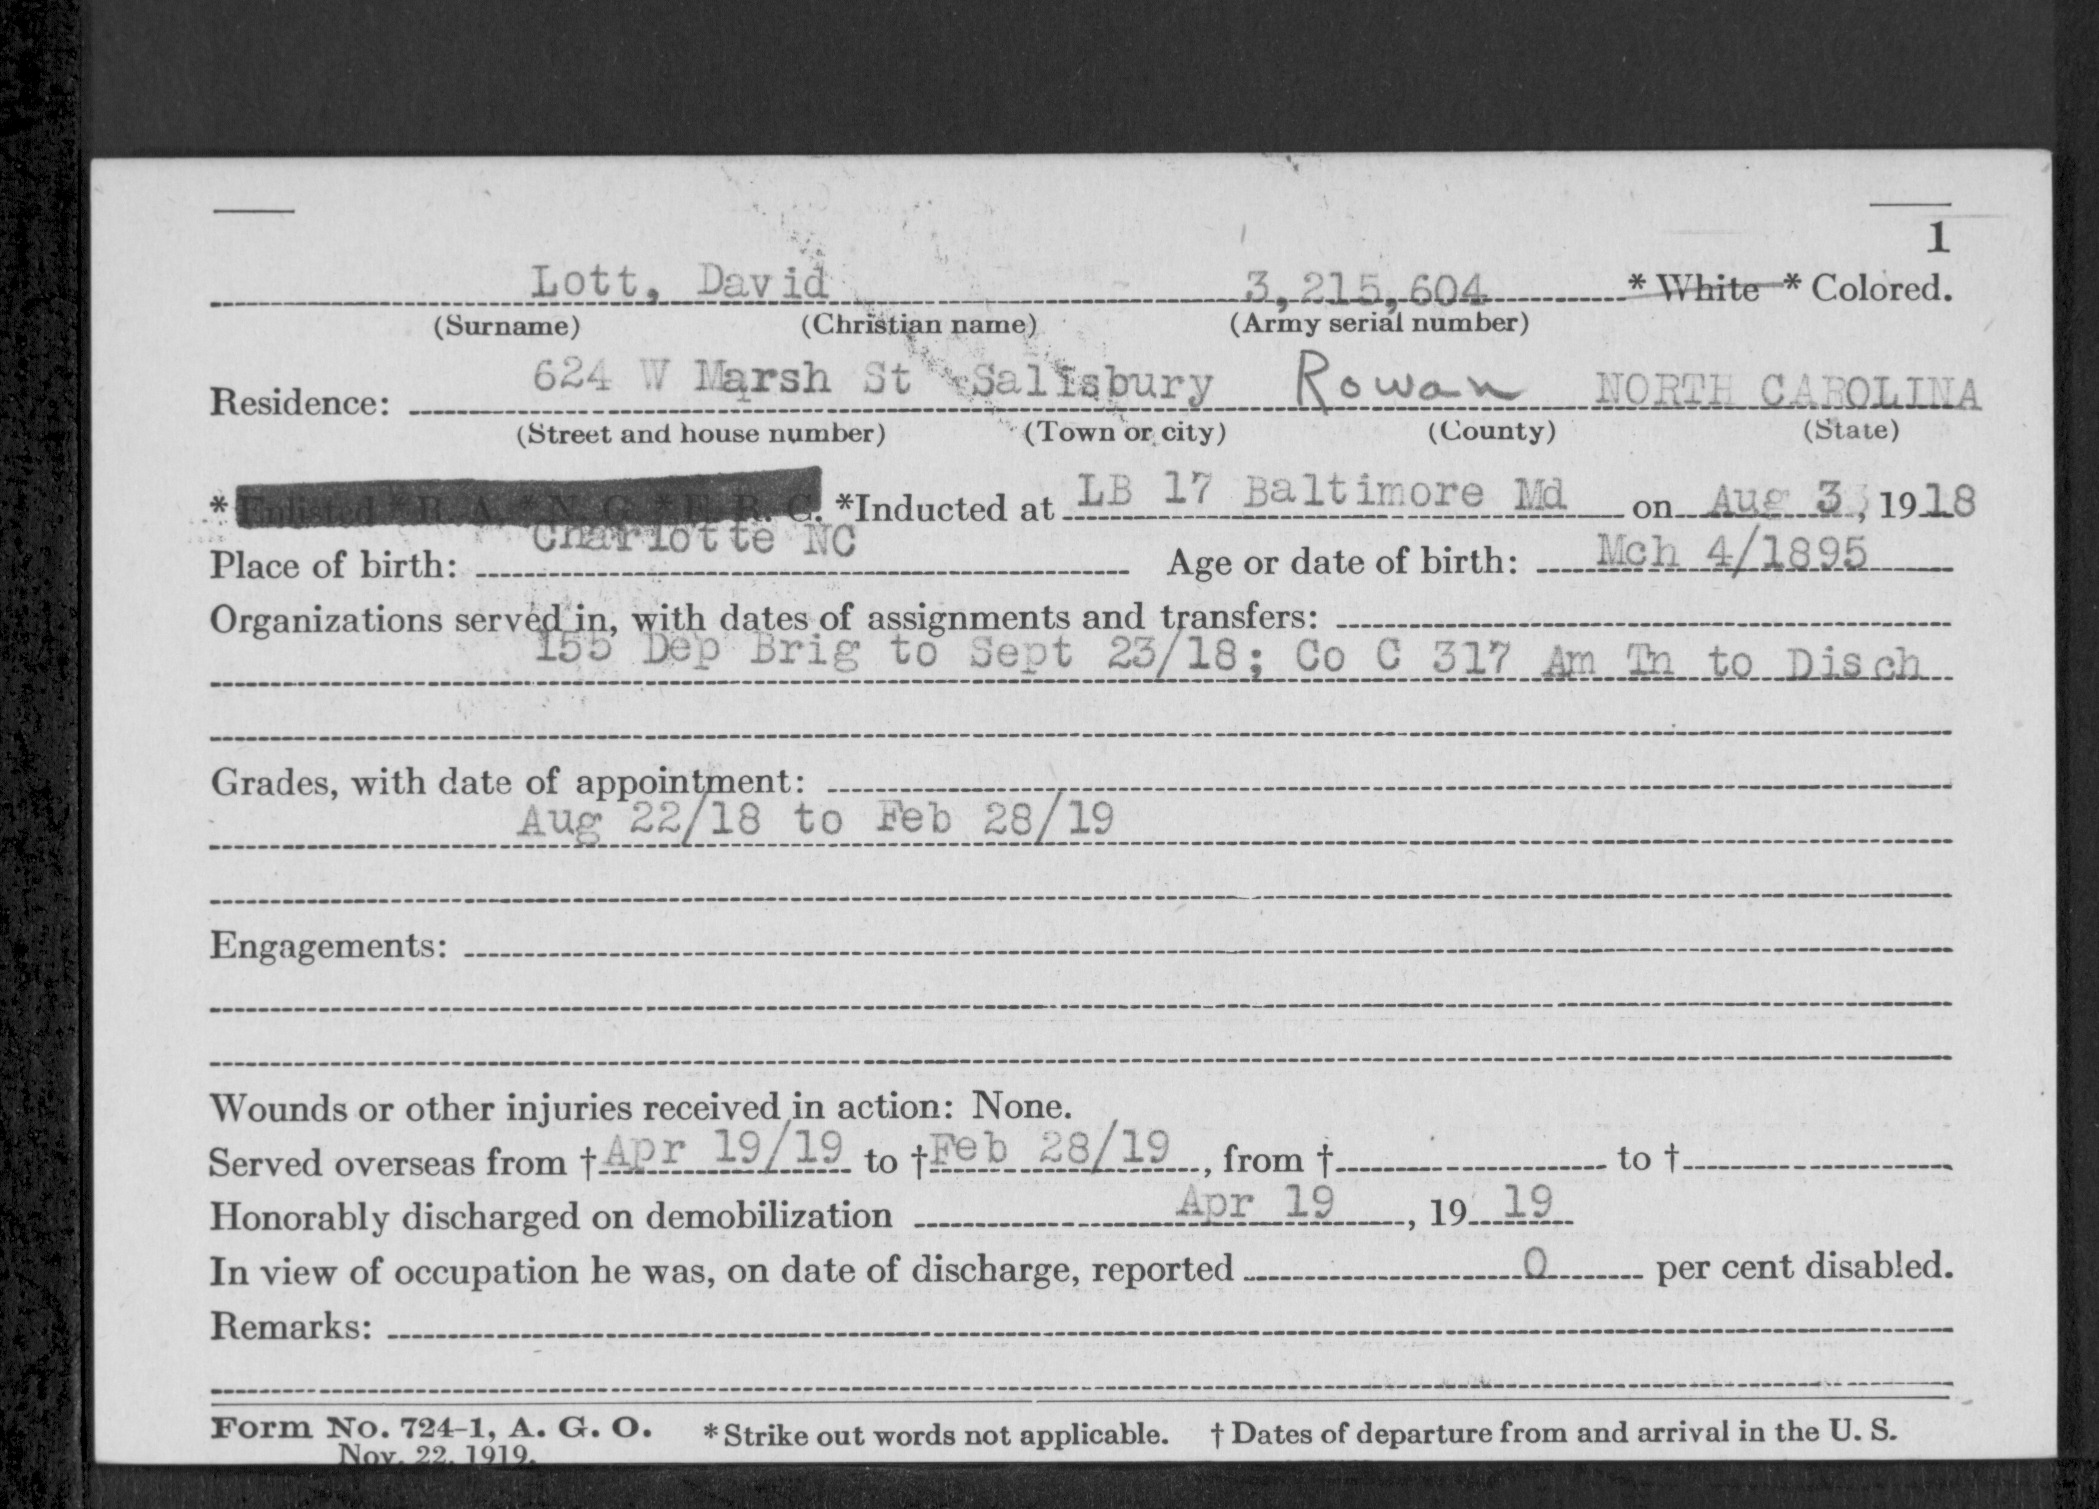 1
Lott, David 3,215,604 * White * Colored.
(Surname) (Christian name) (Army serial number)
Residence: 624 W Marsh St Salisbury Rowan NORTH CAROLINA
(Street and house number) (Town or city) (County) (State)
* Enlisted * R. A. * N. G. * E. R. C. *Inducted at LB 17 Baltimore Md on Aug 3, 1918
Place of birth: Charlotte NC Age or date of birth: Mch 4/1895
Organizations served in, with dates of assignments and transfers:
155 Dep Brig to Sept 23/18; Co C 317 Am Tn to Disch
Grades, with date of appointment:
Aug 22/18 to Feb 28/19
Engagements:
Wounds or other injuries received in action: None.
Served overseas from † Apr 19/19 to † Feb 28/19, from † to †
Honorably discharged on demobilization Apr 19, 19 19
In view of occupation he was, on date of discharge, reported 0 per cent disabled.
Remarks:
Form No. 724-1, A. G. O. * Strike out words not applicable. † Dates of departure from and arrival in the U. S.
Nov. 22, 1919.